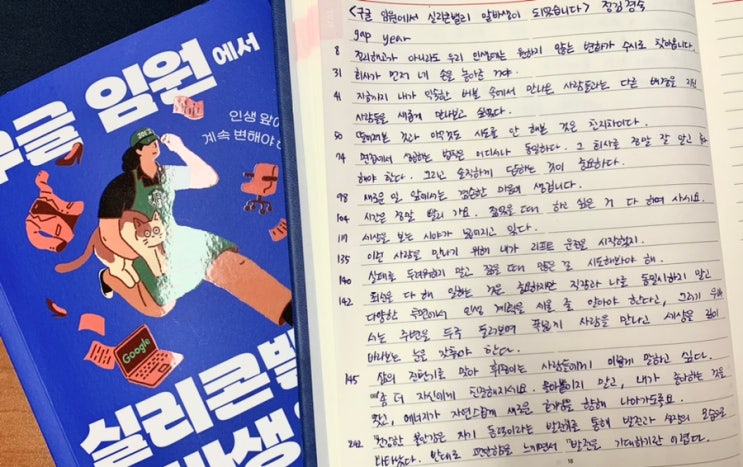 구글 임원에서
인생 앞에
계속 변해야
Google
실리콘밸
<구글 임원에서 실리콘밸리 알바생이 되었습니다> 정김경숙
gap year
8 정리해고가 아니라도 우리 인생에는 원하지 않는 변화가 수시로 찾아옵니다.
31 회사가 먼저 내 손을 놓아준 거야.
41 지금까지 내가 익숙한 버블 속에서 만나온 사람들과는 다른 배경을 가진
사람들을 새롭게 만나보고 싶었다.
50 떨어지는 것과 아무것도 시도를 안 해본 것은 천지차이다.
74 면접에서 성공하는 법칙은 어디서나 동일하다. 그 회사를 정말 잘 알고
해야 한다. 그리고 솔직하게 답하는 것이 중요하다.
98 새로운 일 앞에서는 겸손한 마음이 생깁니다.
104 시간은 정말 빨리 가요. 젊었을 때 하고 싶은 거 다 하며 사세요.
117 세상을 보는 시야가 넓어지고 있다.
135 이런 사람을 만나기 위해 내가 리프트 운전을 시작했지.
140 실패를 두려워하지 말고 젊을 때 많은 걸 시도해봐야 해.
142 최선을 다 해 일하는 것은 중요하지만 직장과 나를 동일시하지 말고
다양한 측면에서 인생 계획을 세울 줄 알아야 한다고, 그러기 위해
서는 주변을 두루 둘러보며 폭넓게 사람을 만나고 세상을 깊이
바라보는 눈을 갖춰야 한다.
145 삶의 전환기를 맞아 휘청이는 사람들에게 이렇게 말하고 싶다.
"좀 더 자신에게 친절해지세요. 몰아붙이지 말고, 내가 좋아하는 것을
찾고, 에너지가 자연스럽게 새로운 여정을 향해 나아가도록요.
242 건강한 불안감은 자기 동력이라는 발전기를 통해 발전과 성장의 모습으로
나타났다. 반대로 편안함을 느끼면서 발전을 기대하기란 어렵다.